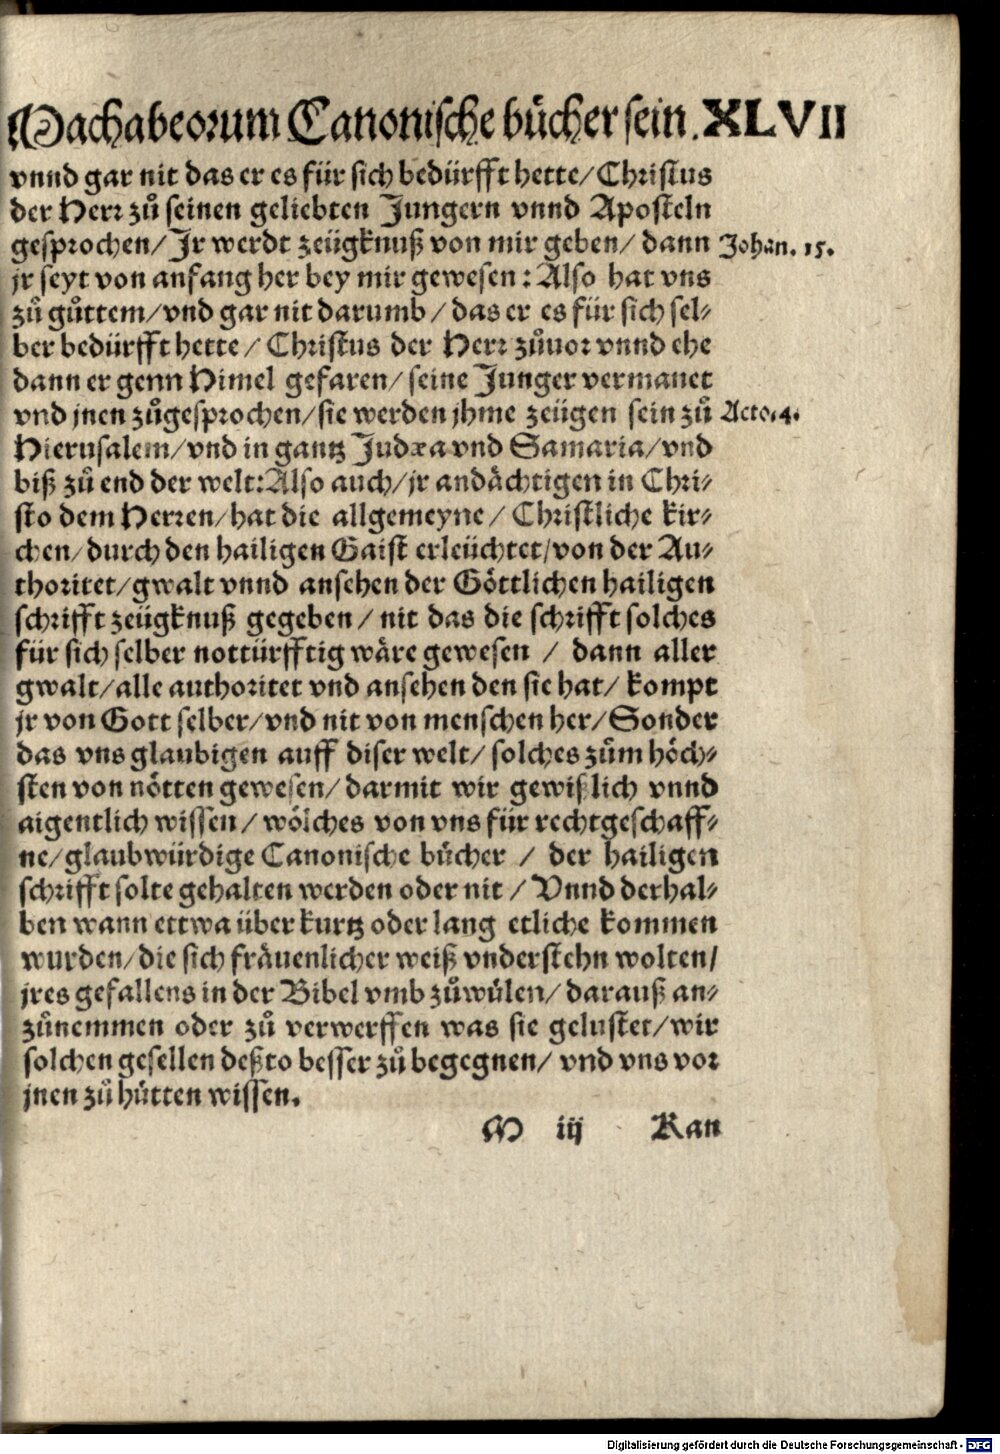 Machabeorum Canonische bücher sein. XLVII
vnnd gar nit das er es für sich bedürfft hette/Christus
der Herr zů seinen geliebten Jungern vnnd Aposteln
gesprochen/Jr werdt zeügknuß von mir geben/ dann Johan. 15.
jr seyt von anfang her bey mir gewesen: Also hat vns
zů gůttem/vnd gar nit darumb/das er es für sich sel-
ber bedürfft hette/ Christus der Herr zůuor vnnd ehe
dann er genn Himel gefaren/seine Junger vermanet
vnd jnen zůgesprochen/sie werden jhme zeügen sein zů Acto.4.
Hierusalem/vnd in gantz Judæa vnd Samaria/vnd
biß zů end der welt:Also auch/jr andächtigen in Chri-
sto dem Herren/hat die allgemeyne/ Christliche kir-
chen/durch den hailigen Gaist erleüchtet/von der Au-
thoritet/gwalt vnnd ansehen der Göttlichen hailigen
schrifft zeügknuß gegeben/ nit das die schrifft solches
für sich selber nottürfftig wäre gewesen / dann aller
gwalt/alle authoritet vnd ansehen den sie hat/ kompt
jr von Gott selber/vnd nit von menschen her/Sonder
das vns glaubigen auff diser welt/ solches zům höch-
sten von nötten gewesen/ darmit wir gewißlich vnnd
aigentlich wissen/wölches von vns für rechtgeschaff-
ne/glaubwürdige Canonische bücher / der hailigen
schrifft solte gehalten werden oder nit / Vnnd derhal-
ben wann ettwa über kurtz oder lang etliche kommen
wurden/die sich fräuenlicher weiß vnderstehn wolten/
jres gefallens in der Bibel vmb zůwülen/darauß an-
zůnemmen oder zů verwerffen was sie gelustet/wir
solchen gesellen deßto besser zů begegnen/ vnd vns vor
jnen zů hütten wissen.
M iij Kan
Digitalisierung gefördert durch die Deutsche Forschungsgemeinschaft - DFG